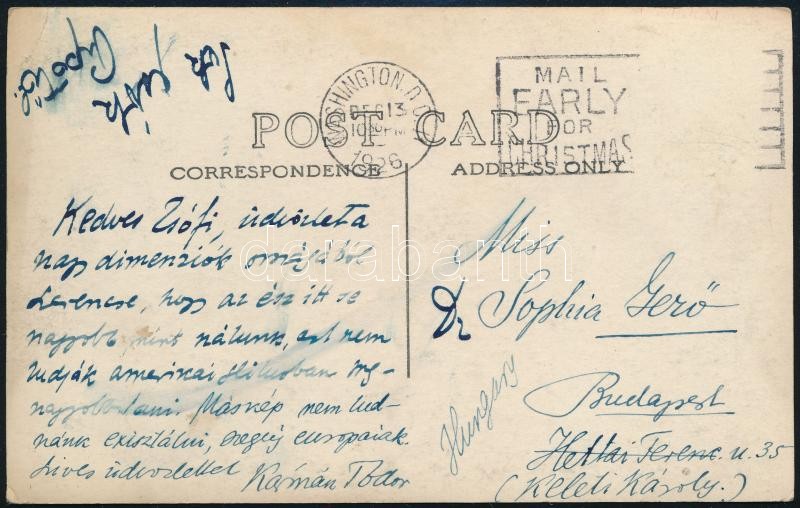 WASHINGTON, D.C.
DEC 13
1030 PM
1926
MAIL
EARLY
FOR
CHRISTMAS
POST CARD
CORRESPONDENCE
ADDRESS ONLY
Kedves Zsófi, üdvözlet a
nagy dimenziók országából
Szerencse, hogy az ész itt se
nagyobb mint nálunk, ezt nem
tudják amerikai stílusban meg-
nagyobbítani. Máskép nem tud-
nánk exisztálni, szegény europaiak.
Szives üdvözlettel
Kármán Todor
Miss
Dr Sophia Gerő
Budapest
Hungary
Ferenc u. 35
(Keleti Károly.)
darabanth